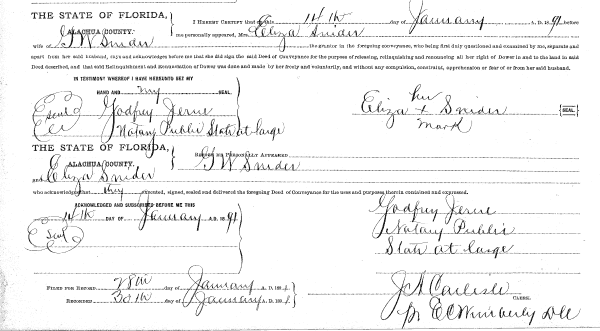 THE STATE OF FLORIDA,
ALACHUA COUNTY.
I HEREBY CERTIFY that on this 14th day of January A. D. 1891 before
me personally appeared, Mrs. Eliza Snider
wife of G W Snider the grantor in the foregoing conveyance, who being first duly questioned and examined by me, separate and
apart from her said husband, says and acknowledges before me that she did sign the said Deed of Conveyance for the purpose of releasing, relinquishing and renouncing all her right of Dower in and to the land in said
Deed described, and that said Relinquishment and Renunciation of Dower was done and made by her freely and voluntarily, and without any compulsion, constraint, apprehension or fear of or from her said husband.
IN TESTIMONY WHEREOF I HAVE HEREUNTO SET MY
HAND AND my SEAL.
Seal
Godfrey
Notary Public State at large
her
Eliza x Snider
mark
SEAL
THE STATE OF FLORIDA,
ALACHUA COUNTY.
BEFORE ME PERSONALLY APPEARED G W Snider
and Eliza Snider
who acknowledged that they executed, signed, sealed and delivered the foregoing Deed of Conveyance for the uses and purposes therein contained and expressed.
ACKNOWLEDGED AND SUBSCRIBED BEFORE ME THIS
14th DAY OF January A. D. 1891
Seal
Godfrey
Notary Public
State at large
FILED FOR RECORD 28th day of January A. D. 1891
RECORDED 30th day of January A. D. 1891
J A Carlisle CLERK.
pr E C Wimberly D C